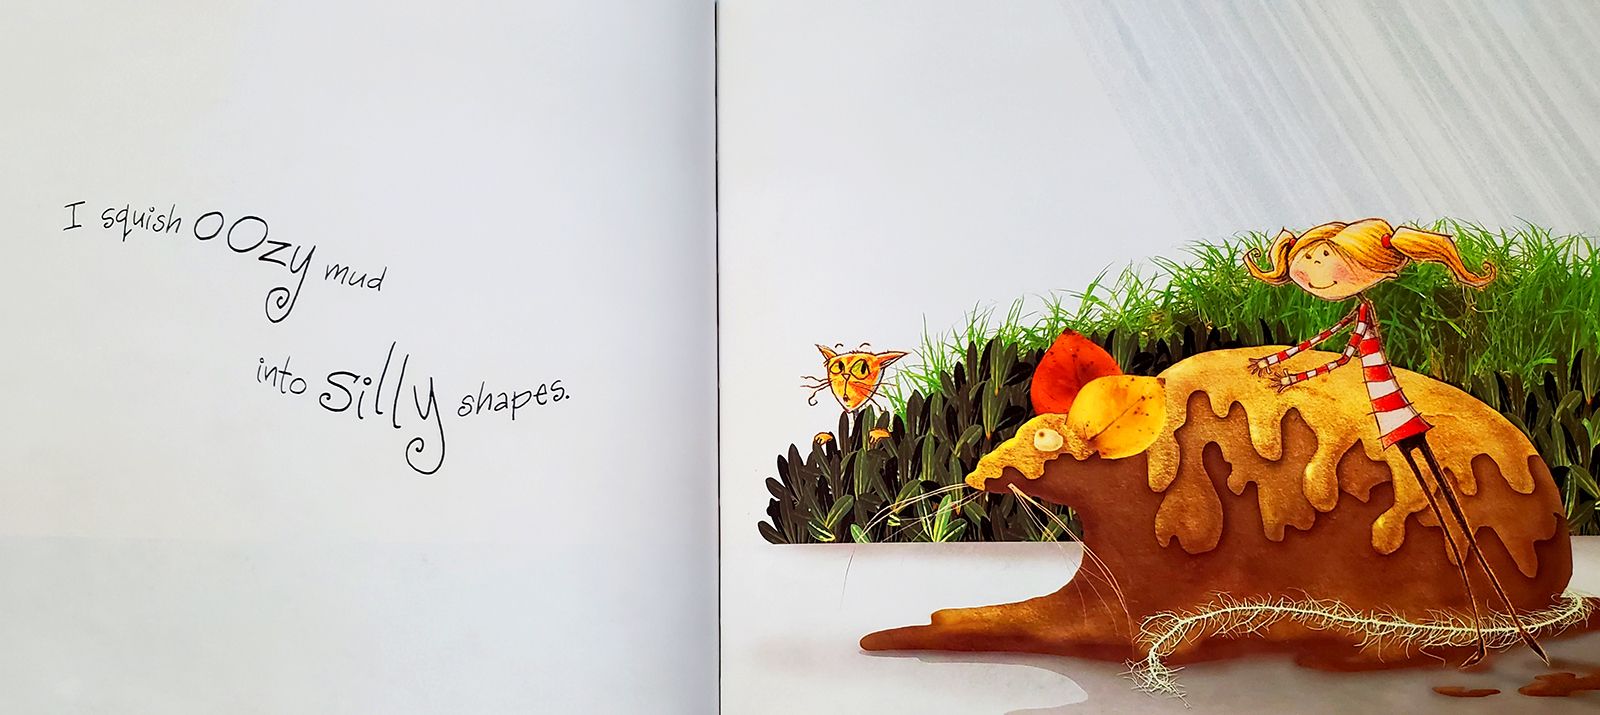 I squish oozy mud
into silly shapes.